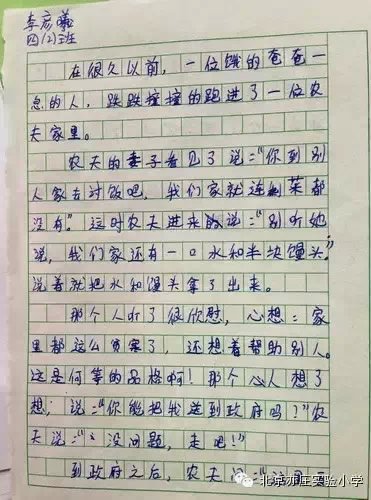 李彦曦
四(2)班
在很久以前，一位饿的奄奄一
息的人，跌跌撞撞的跑进了一位农
夫家里。
农夫的妻子看见了说：“你到别
人家去讨饭吧，我们家就连剩菜都
没有”。这时农夫进来说：“别听她
说，我们家还有一口水和半块馒头。”
说着就把水和馒头拿了出来。
那个人听了很欣慰，心想：家
里都这么贫寒了，还想着帮助别人。
这是何等的品格啊！那个人想了
想，说：“你能把我送到政府吗？”农
夫说：“没问题，走吧！”
到政府之后，农夫
北京亦庄实验小学